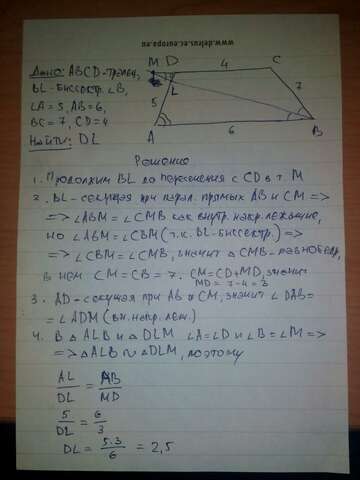 www.delrus.ec.europa.eu
Дано: ABCD-трапец,
BL-биссектр. ∠B,
LA=5, AB=6,
BC=7, CD=4
Найти: DL
M D 4 C
L
5
7
A 6 B
Решение
1. Продолжим BL до пересечения с CD в т. M
2. BL-секущая при парал. прямых AB и CM =>
=> ∠ABM = ∠CMB как внутр. накр. лежащие,
но ∠ABM = ∠CBM (т.к. BL-биссектр.) =>
=> ∠CBM = ∠CMB, значит △CMB-равнобедр,
в нем CM=CB=7, CM=CD+MD, значит
MD = 7-4=3
3. AD-секущая при AB и CM, значит ∠DAB=
= ∠ADM (вн. накр. леж.)
4. В △ALB и △DLM ∠A=∠D и ∠B=∠M =>
=> △ALB ∾ △DLM, поэтому
AL/DL = AB/MD
5/DL = 6/3
DL = 5·3/6 = 2,5